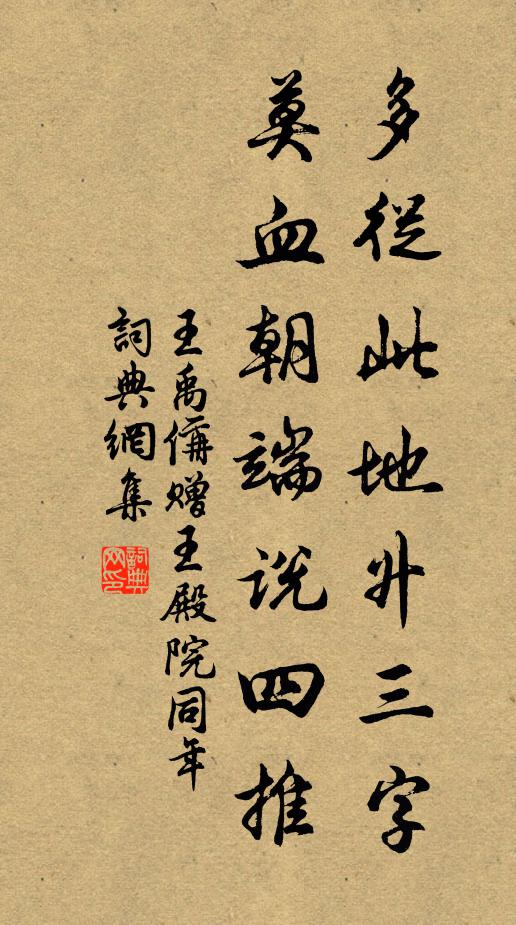 多從此地升三字
莫血朝端說四推
王禹偁贈王殿院同年
詞典網集
詞典網印